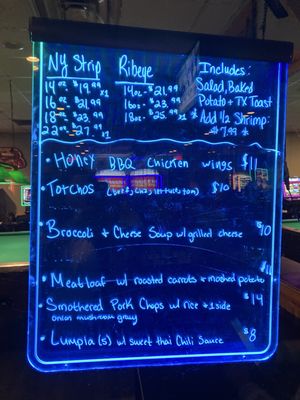 NY Strip Ribeye Includes:
14oz - $19.99 x1 14oz - $21.99 Salad, Baked
16oz - $21.99 16oz - $23.99 Potato + TX Toast
18oz - $23.99 18oz - $25.99 x1 * Add 1/2 Shrimp: *
22oz - $27.99 x1 $7.99 *
• Honey BBQ Chicken wings $11
• Torchos $10
• Broccoli + Cheese Soup w/ grilled cheese $10
$11
• Meatloaf w/ roasted carrots + mashed potato
• Smothered Pork Chops w/ rice + 1 side $14
onion mushroom gravy
• Lumpia (5) w/ sweet thai Chili Sauce $8